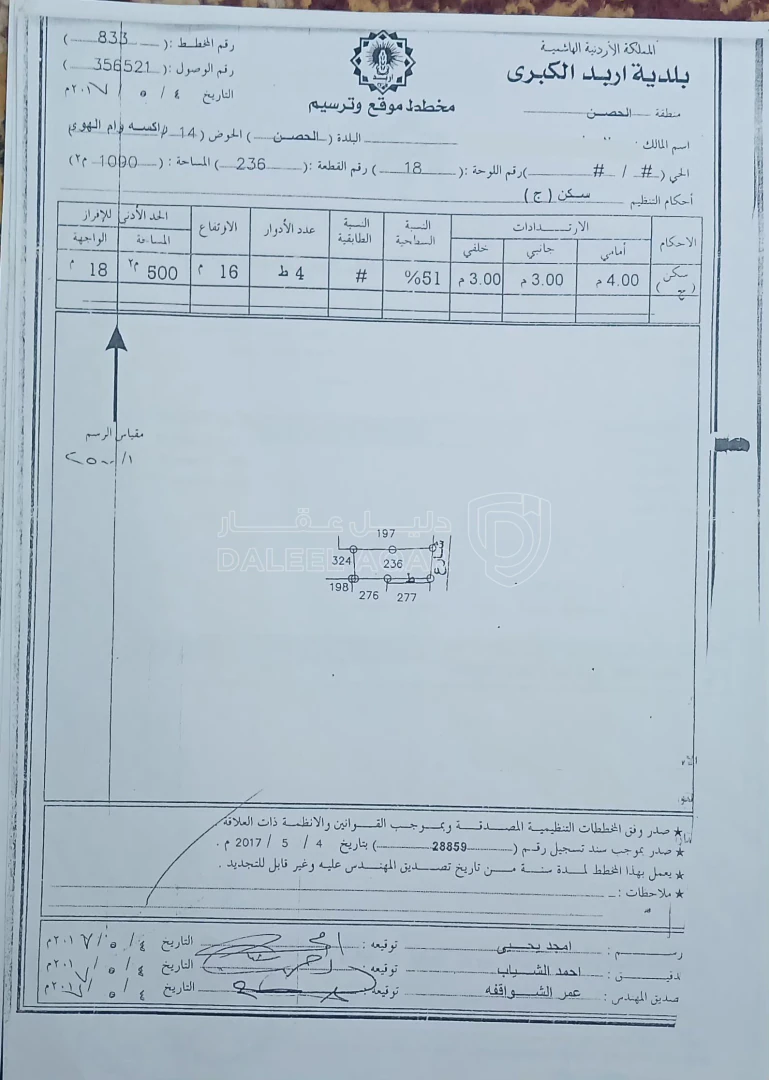 المملكة الأردنية الهاشمية
بلدية اربد الكبرى
منطقة الحصن
اربد
مخطط موقع وترسيم
رقم المخطط : ( 833 )
رقم الوصول : ( 356521 )
التاريخ ٤ / ٥ / ٢٠١٧م
اسم المالك البلدة ( الحصن ) الحوض ( 14 / اكسه وام الهوى
الحي ( # / # ) رقم اللوحة : ( 18 ) رقم القطعة : ( 236 ) المساحة : ( 1000 م٢ )
أحكام التنظيم سكن ( ج )
الاحكام الارتدادات النسبة السطحية النسبة الطابقية عدد الأدوار الارتفاع الحد الأدنى للإفراز
أمامي جانبي خلفي المساحة الواجهة
سكن ( ج ) 4.00 م 3.00 م 3.00 م %51 # 4 ط 16 م 500 م٢ 18 م
مقياس الرسم
١/٢٥٠٠
دليل عقار
DALEEL AQAR
197
شارع
324
236
ط
198
276
277
★ صدر وفق المخططات التنظيمية المصدقة وبموجب القوانين والانظمة ذات العلاقة .
★ صدر بموجب سند تسجيل رقم ( 28859 ) بتاريخ 4 / 5 / 2017 م .
★ يعمل بهذا المخطط لمدة سنة من تاريخ تصديق المهندس عليه وغير قابل للتجديد .
★ ملاحظات :
رسم : امجد يحيى توقيعه : التاريخ ٤ / ٥ / ٢٠١٧م
تدقيق : احمد الشياب توقيعه : التاريخ ٤ / ٥ / ٢٠١٧م
تصديق المهندس : عمر الشواقفه توقيعه : التاريخ ٤ / ٥ / ٢٠١٧م